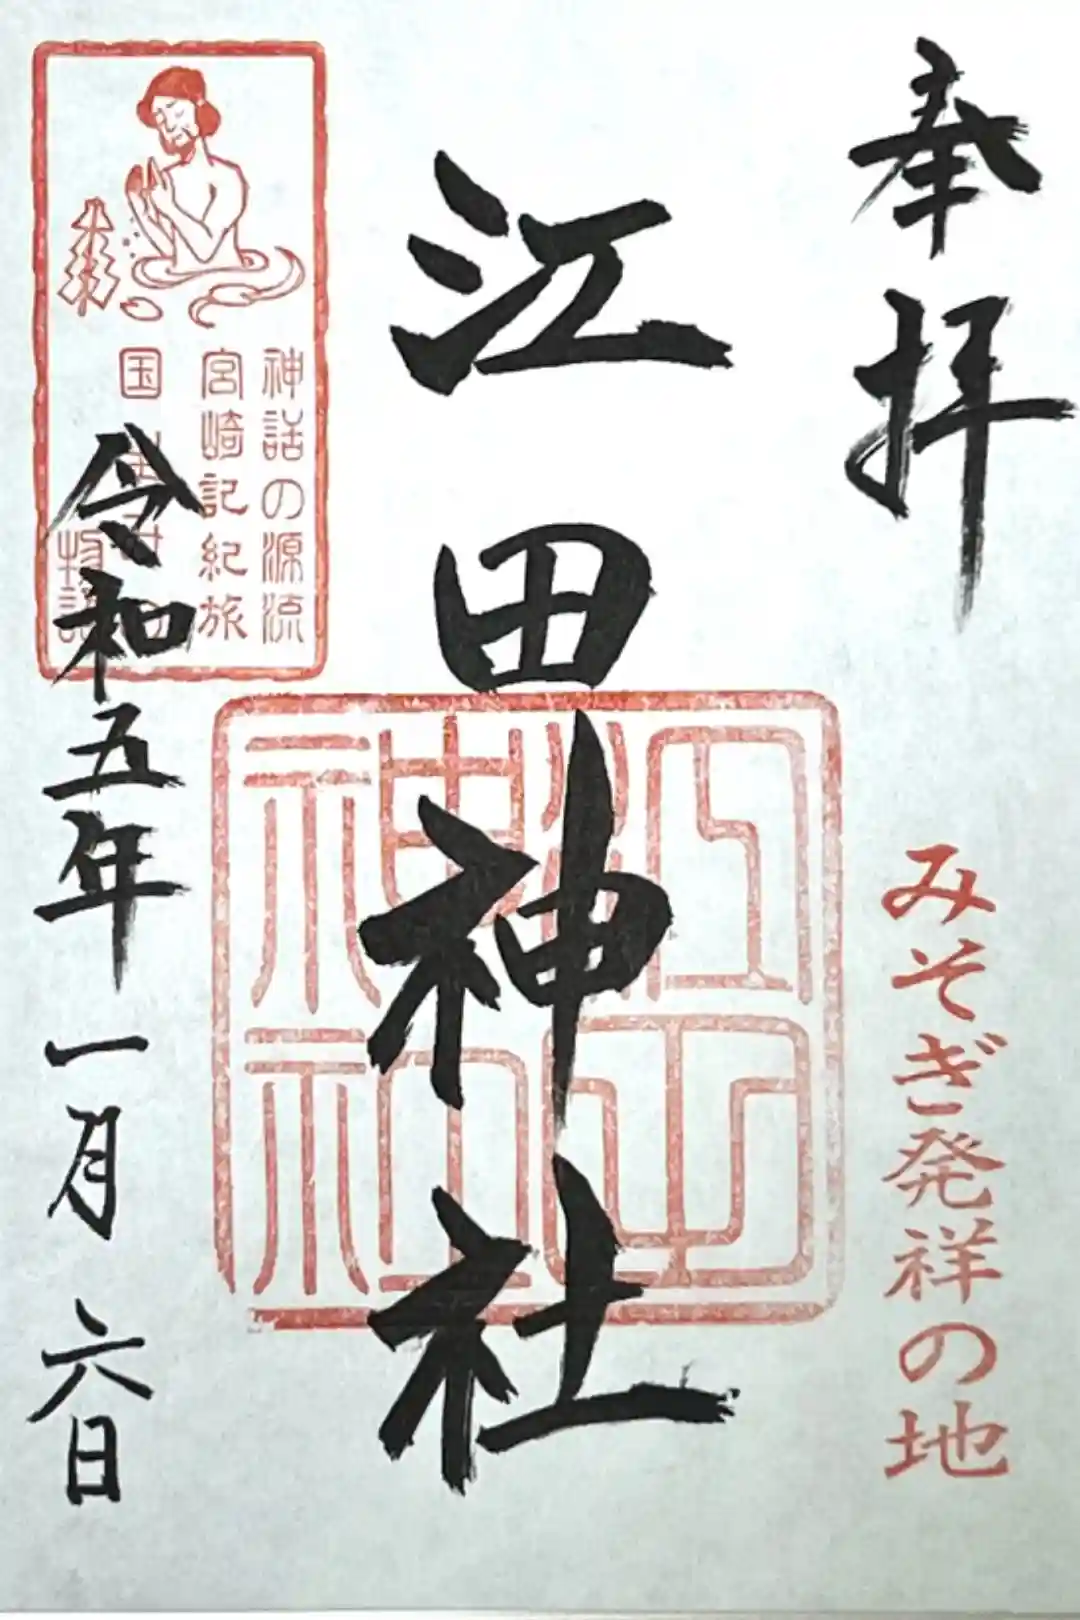 奉拝
みそぎ発祥の地
江田神社
江田神社
神話の源流
宮崎記紀旅
国
物語
令和五年一月六日